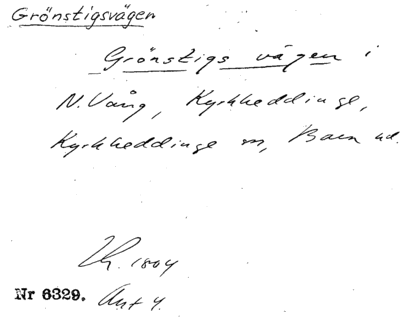 Grönstigsvägen
Grönstigs vägen i
N. Vång, Kyrkheddinge,
Kyrkheddinge sn, Bara hd.
1804
Nr 6329. Akt 4.